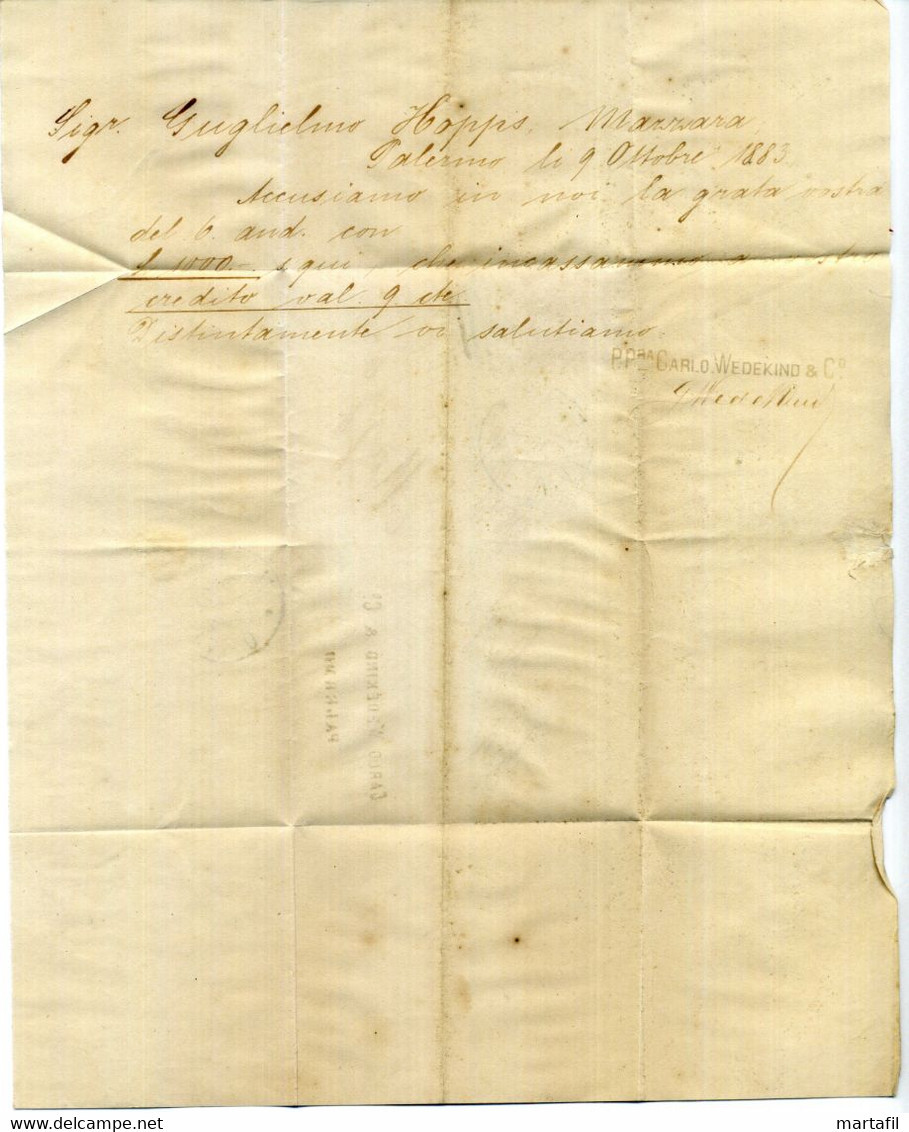 Sigr. Guglielmo Hopps, Mazzara
Palermo li 9 Ottobre 1883
Accusiamo in noi la grata vostra
del 6. and. con
£ 1000.- s/qui, che incassammo a vostro
credito val. 9 cte
Distintamente vi salutiamo.
P.PRA CARLO WEDEKIND & Co.
GWedekind
CARLO WEDEKIND & Co.
PALERMO
martafil